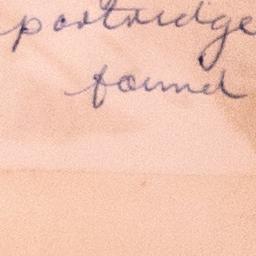 partridge
found